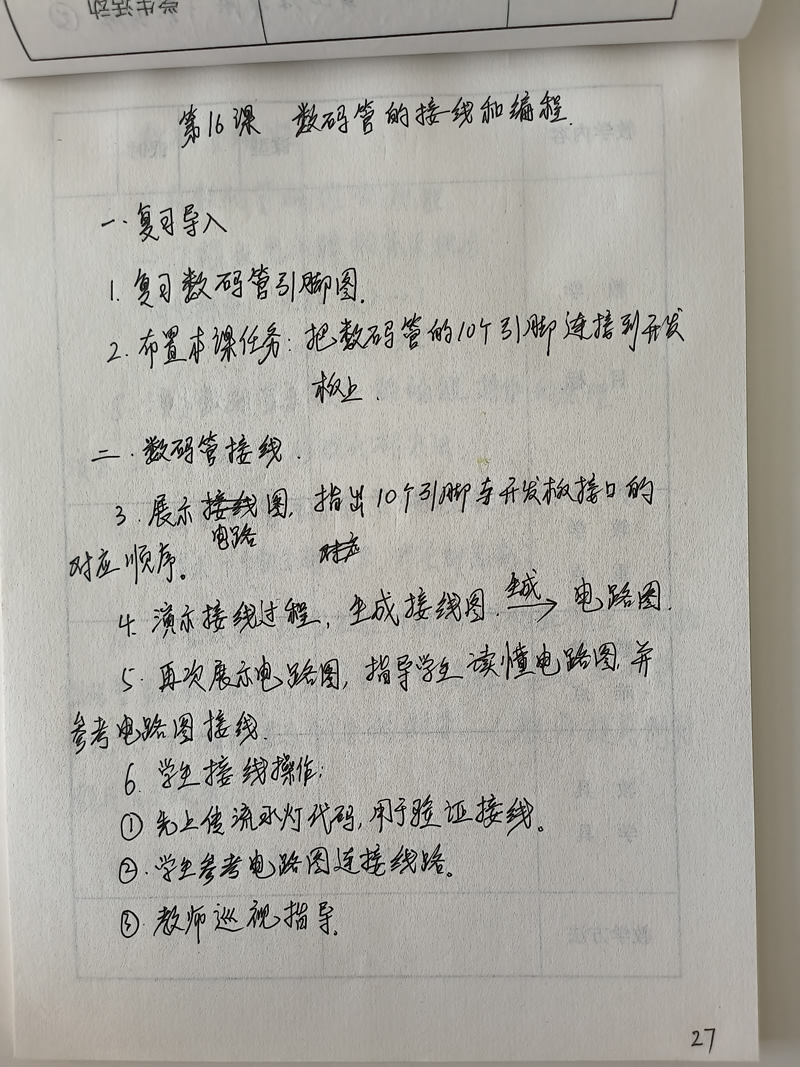 学生活动
第16课 数码管的接线和编程.
一. 复习导入
1. 复习数码管引脚图.
2. 布置本课任务: 把数码管的10个引脚连接到开发
板上.
二. 数码管接线.
3. 展示接线图, 指出10个引脚与开发板接口的
电路 对应
对应顺序。
4. 演示接线过程, 生成接线图. 生成→ 电路图.
5. 再次展示电路图, 指导学生读懂电路图, 并
参考电路图接线.
6. 学生接线操作:
① 先上传流水灯代码, 用于验证接线。
②. 学生参考电路图连接线路。
③. 教师巡视指导.
教学内容
教学方法
27